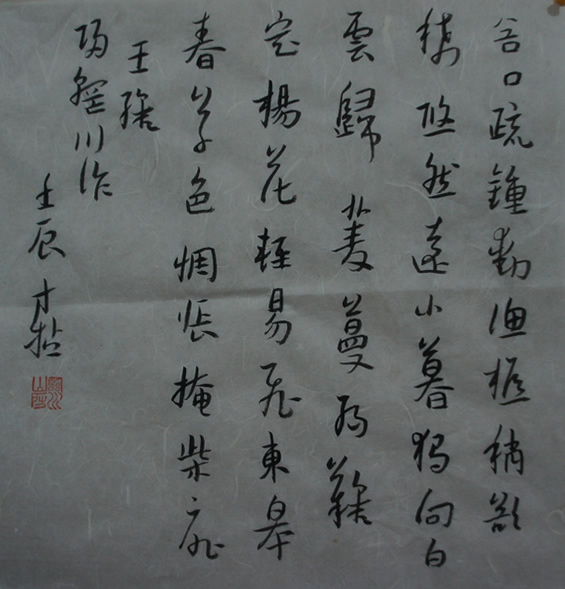 谷口疏鍾動漁樵稍欲
稀悠然遠山暮獨向白
雲歸菱蔓弱難
定楊花輕易飛東皋
春草色惆悵掩柴扉
王維
歸輞川作
壬辰才